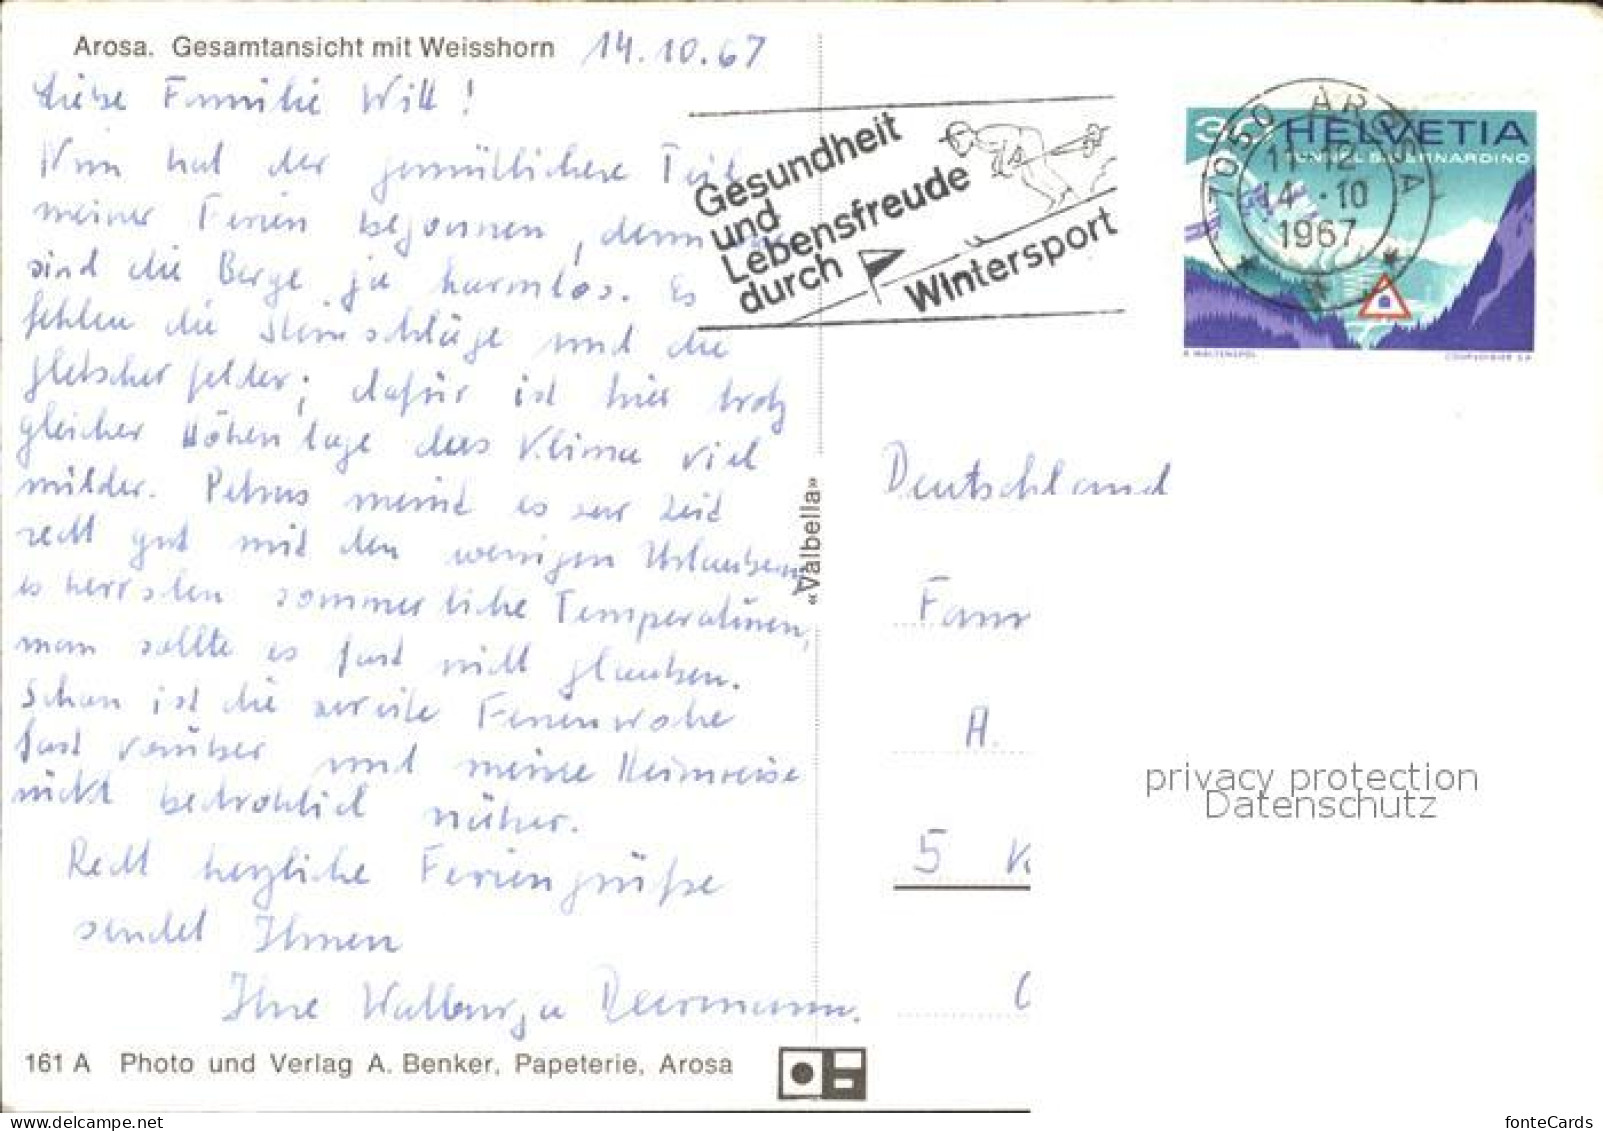 Arosa. Gesamtansicht mit Weisshorn 14.10.67
Liebe Familie Will!
Nun hat der gemütlichere Teil
meiner Ferien begonnen, denn
sind die Berge ja harmlos. Es
fehlen die Steinschläge und die
Gletscherfelder; dafür ist hier trotz
gleicher Höhenlage das Klima viel
milder. Petrus meint es zur Zeit
recht gut mit den wenigen Urlaubern,
es herrschen sommerliche Temperaturen,
man sollte es fast nicht glauben.
Schon ist die zweite Ferienwoche
fast vorüber und meine Heimreise
rückt bedrohlich näher.
Recht herzliche Feriengrüße
sendet Ihnen
Ihre Walburga
161 A Photo und Verlag A. Benker, Papeterie, Arosa
«Valbella»
Gesundheit
und
Lebensfreude
durch
Wintersport
7050 AROSA
11-12
14.-10
1967
30 HELVETIA
TUNNEL S. BERNARDINO
H. WALTENSPÜL
COURVOISIER S.A.
Deutschland
Fam
A.
5 K
privacy protection
Datenschutz
fonteCards